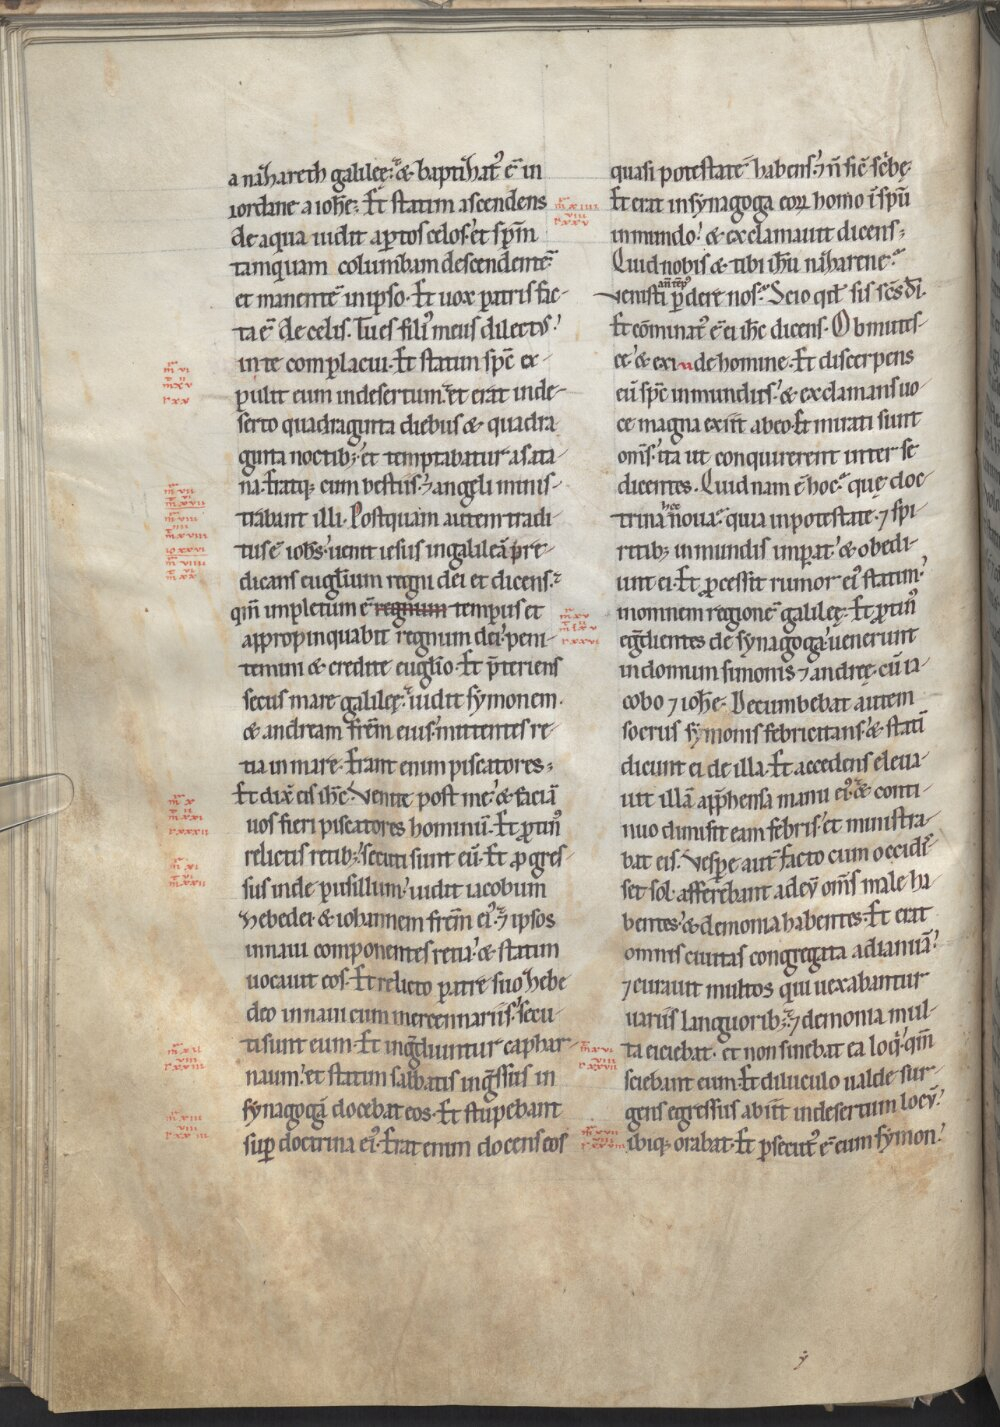 a nazareth galileę· & baptizat᷒ ē in
iordane a ioħe; Et statim ascendens
de aqua uidit ap̲tos celos· et sp̄m
tamquam columbam descendentē
et manentē in ipso· Et uox patris fac-
ta ē de celis· Tu es fili᷒ meus dilect᷒·
in te complacui· Et statim sp̄c ex-
pulit eum in desertum· et erat in de-
serto quadraginta diebus & quadra
ginta noctib; et temptabatur a sata-
na· Eratq; cum bestiis· ⁊ angeli minis-
trabant illi· Postquam autem tradi
tus ē ioħs· uenit iesus in galileā pre-
dicans euglium regni dei et dicens·
qm̄ impletum ē regnum tempus et
appropinquabit regnum dei· peni-
temini & credite euglio· Et p̄teriens
secus mare galileę· uidit symonem·
& andream frēm eius· mittentes re-
tia in mare· Erant enim piscatores;
Et dix̄ eis iħc· Venite post me· & faciā
uos fieri piscatores hominū· Et ꝓtin᷒
relictis retib; secuti sunt eū· Et ꝓgres-
sus inde pusillum· uidit iacobum
zebedei· & iohannem frēm ei᷒· ⁊ ipsos
in naui componentes retia· & statim
uocauit eos· Et relicto patre suo zebe
deo in naui cum mercennariis· secu-
ti sunt eum· Et ingr̄diuntur caphar-
naum· et statim sabbatis ingr̄ssus in
synagogā docebat eos· Et stupebant
sup̲ doctrina ei᷒· Erat enim docens eos
quasi potestatē habens· ⁊ n̄ sic̄ scribę·
Et erat in synagoga eoꝝ homo ī spū
inmundo· & exclamauit dicens;
Quid nobis & tibi iħu nazarene·
an̄ tēp᷒
uenisti p̲dere nos· Scio qd̄ sis sc̄s dī·
Et cōminat᷒ ē ei iħc dicens· Obmutes-
ce· & exi de homine· Et discerpens
eū sp̄c inmundus· & exclamans uo-
ce magna exiit ab eo· Et mirati sunt
om̄s· ita ut conquirerent inter se
dicentes· Quid nam ē hoc· quę doc-
hec
trina noua· quia in potestate· ⁊ spi-
ritib; inmundis imp̲at· & obedi-
unt ei· Et ꝓcessit rumor ei᷒ statim
in omnem regionē galileę· Et ꝓtin᷒
egr̄dientes de synagoga· uenerunt
in domum simonis ⁊ andreę· cū ia-
cobo ⁊ ioħe· Decumbebat autem
socrus symonis febricitans· & statī
dicunt ei de illa· Et accedens eleua-
uit illā app̄hensa manu ei᷒· & conti-
nuo dimisit eam febris· et ministra-
bat eis· Vesp̲e aut̄ facto cum occidis-
set sol· afferebant ad eum om̄s male ha
bentes· & demonia habentes· Et erat
omnis ciuitas congregata ad ianuā·
⁊ curauit multos qui uexabantur
uariis languorib; ⁊ demonia mul-
ta eiciebat· et non sinebat ea loqi· qm̄
sciebant eum· Et diluculo ualde sur-
gens egressus abiit in desertum locum·
ibiq; orabat· Et p̲secut᷒ ē eum symon·